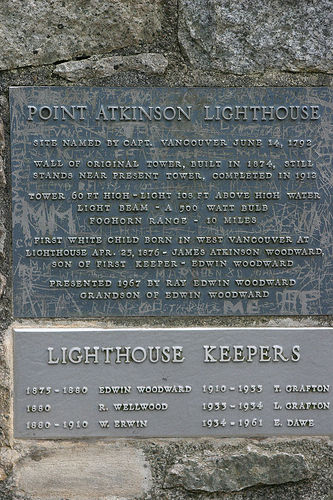 POINT ATKINSON LIGHTHOUSE
SITE NAMED BY CAPT. VANCOUVER JUNE 14, 1792
WALL OF ORIGINAL TOWER, BUILT IN 1874, STILL
STANDS NEAR PRESENT TOWER, COMPLETED IN 1912
TOWER 60 FT HIGH - LIGHT 108 FT ABOVE HIGH WATER
LIGHT BEAM - A 500 WATT BULB
FOGHORN RANGE - 10 MILES
FIRST WHITE CHILD BORN IN WEST VANCOUVER AT
LIGHTHOUSE APR. 23, 1876 - JAMES ATKINSON WOODWARD
SON OF FIRST KEEPER - EDWIN WOODWARD
PRESENTED 1967 BY RAY EDWIN WOODWARD
GRANDSON OF EDWIN WOODWARD
ME
LIGHTHOUSE KEEPERS
1875 - 1880 EDWIN WOODWARD 1910 - 1933 T. GRAFTON
1880 R. WELLWOOD 1933 - 1934 L. GRAFTON
1880 - 1910 W. ERWIN 1934 - 1961 E. DAWE